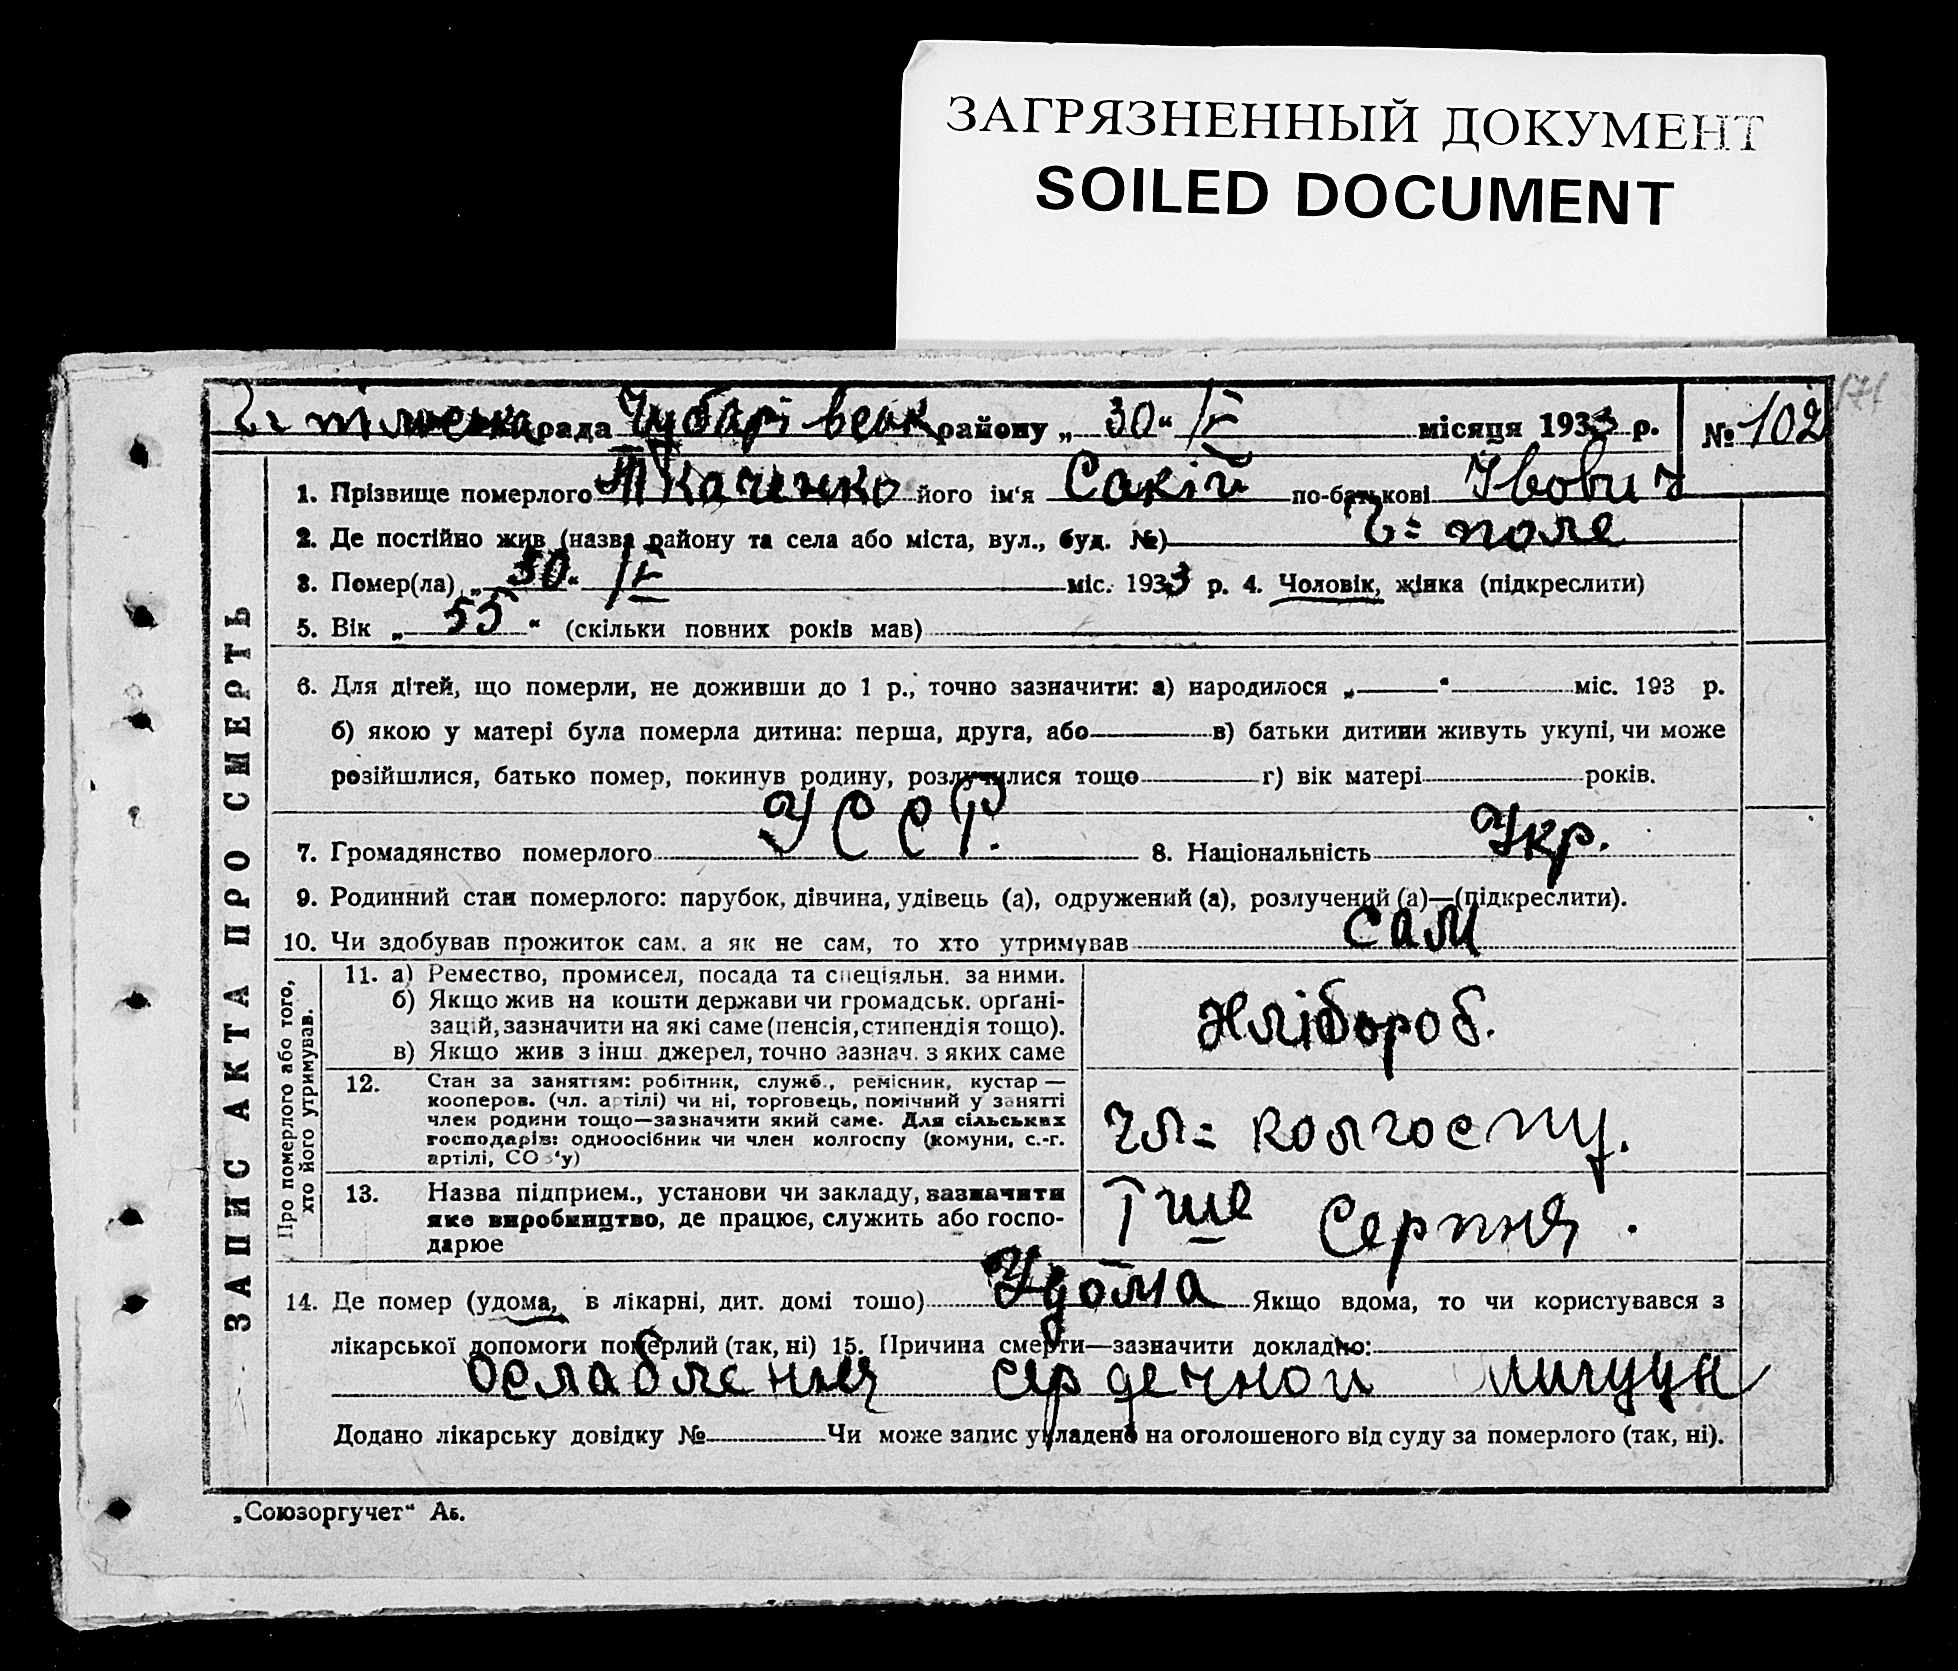 ЗАГРЯЗНЕННЫЙ ДОКУМЕНТ
SOILED DOCUMENT
171
рада Чубарівськ району „30“ /V місяця 1933 р. № 102
1. Прізвище померлого Ткаченко його ім‘я по-батькові
2. Де постійно жив (назва району та села або міста, вул., буд. №) Г= поле
3. Помер(ла) „30“ /V міс. 1933 р. 4. Чоловік, жінка (підкреслити)
5. Вік „55“ (скільки повних років мав)
6. Для дітей, що померли, не доживши до 1 р., точно зазначити: а) народилося „—“ міс. 193 р.
б) якою у матері була померла дитина: перша, друга, або — в) батьки дитини живуть укупі, чи може
розійшлися, батько помер, покинув родину, розлучилися тощо — г) вік матері років.
7. Громадянство померлого УССР. 8. Національність Укр.
9. Родинний стан померлого: парубок, дівчина, удівець (а), одружений (а), розлучений (а)—(підкреслити).
10. Чи здобував прожиток сам, а як не сам, то хто утримував сам
ЗАПИС АКТА ПРО СМЕРТЬ
Про померлого або того,
хто його утримував.
11. а) Ремество, промисел, посада та спеціяльн. за ними.
б) Якщо жив на кошти держави чи громадськ. орґані-
зацій, зазначити на які саме (пенсія, стипендія тощо).
в) Якщо жив з інш. джерел, точно зазнач. з яких саме
Хлібороб.
12. Стан за заняттям: робітник, служб., ремісник, кустар —
кооперов. (чл. артілі) чи ні, торговець, помічний у занятті
член родини тощо—зазначити який саме. Для сільських
господарів: одноосібник чи член колгоспу (комуни, с.-г.
артілі, СО З‘у)
чл= колгоспу.
13. Назва підприєм., установи чи закладу, зазначити
яке виробництво, де працює, служить або госпо-
дарює
1ше Серпня.
14. Де помер (удома, в лікарні, дит. домі тощо) Удома Якщо вдома, то чи користувався з
лікарської допомоги померлий (так, ні) 15. Причина смерти—зазначити докладно:
ослаблення сердечной
Додано лікарську довідку № Чи може запис укладено на оголошеного від суду за померлого (так, ні).
„Союзоргучет“ Аб.